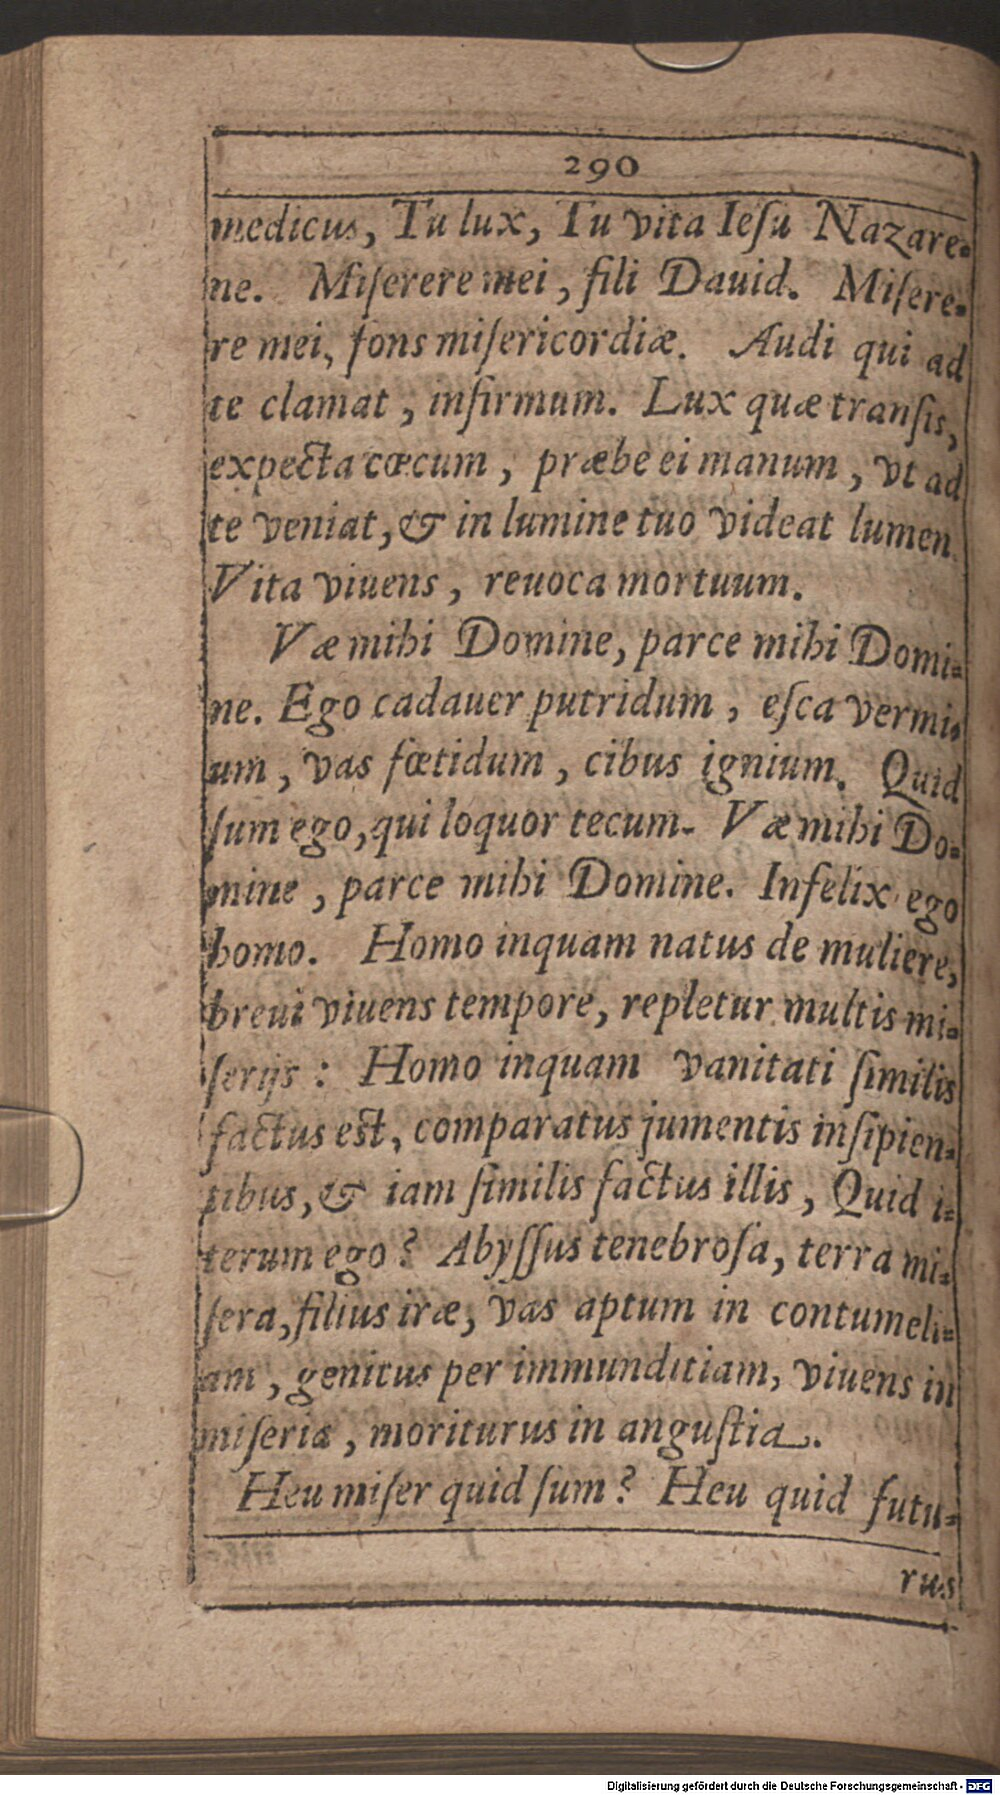 290
medicus, Tu lux, Tu vita Ieſu Nazare-
ne. Miſerere mei, fili Dauid. Miſere-
re mei, fons miſericordiæ. Audi qui ad
te clamat, infirmum. Lux quæ tranſis,
expecta cœcum, præbe ei manum, vt ad
te veniat, & in lumine tuo videat lumen.
Vita viuens, reuoca mortuum.
Væ mihi Domine, parce mihi Domi-
ne. Ego cadauer putridum, eſca vermi-
um, vas fœtidum, cibus ignium. Quid
ſum ego, qui loquor tecum. Væ mihi Do-
mine, parce mihi Domine. Infelix ego
homo. Homo inquam natus de muliere,
breui viuens tempore, repletur multis mi-
ſerijs: Homo inquam vanitati ſimilis
factus est, comparatus jumentis inſipien-
tibus, & iam ſimilis factus illis, Quid i-
terum ego? Abyſſus tenebroſa, terra mi-
ſera, filius iræ, vas aptum in contumeli-
am, genitus per immunditiam, viuens in
miſeria, moriturus in anguſtia.
Heu miſer quid ſum? Heu quid futu-
rus
Digitalisierung gefördert durch die Deutsche Forschungsgemeinschaft - DFG